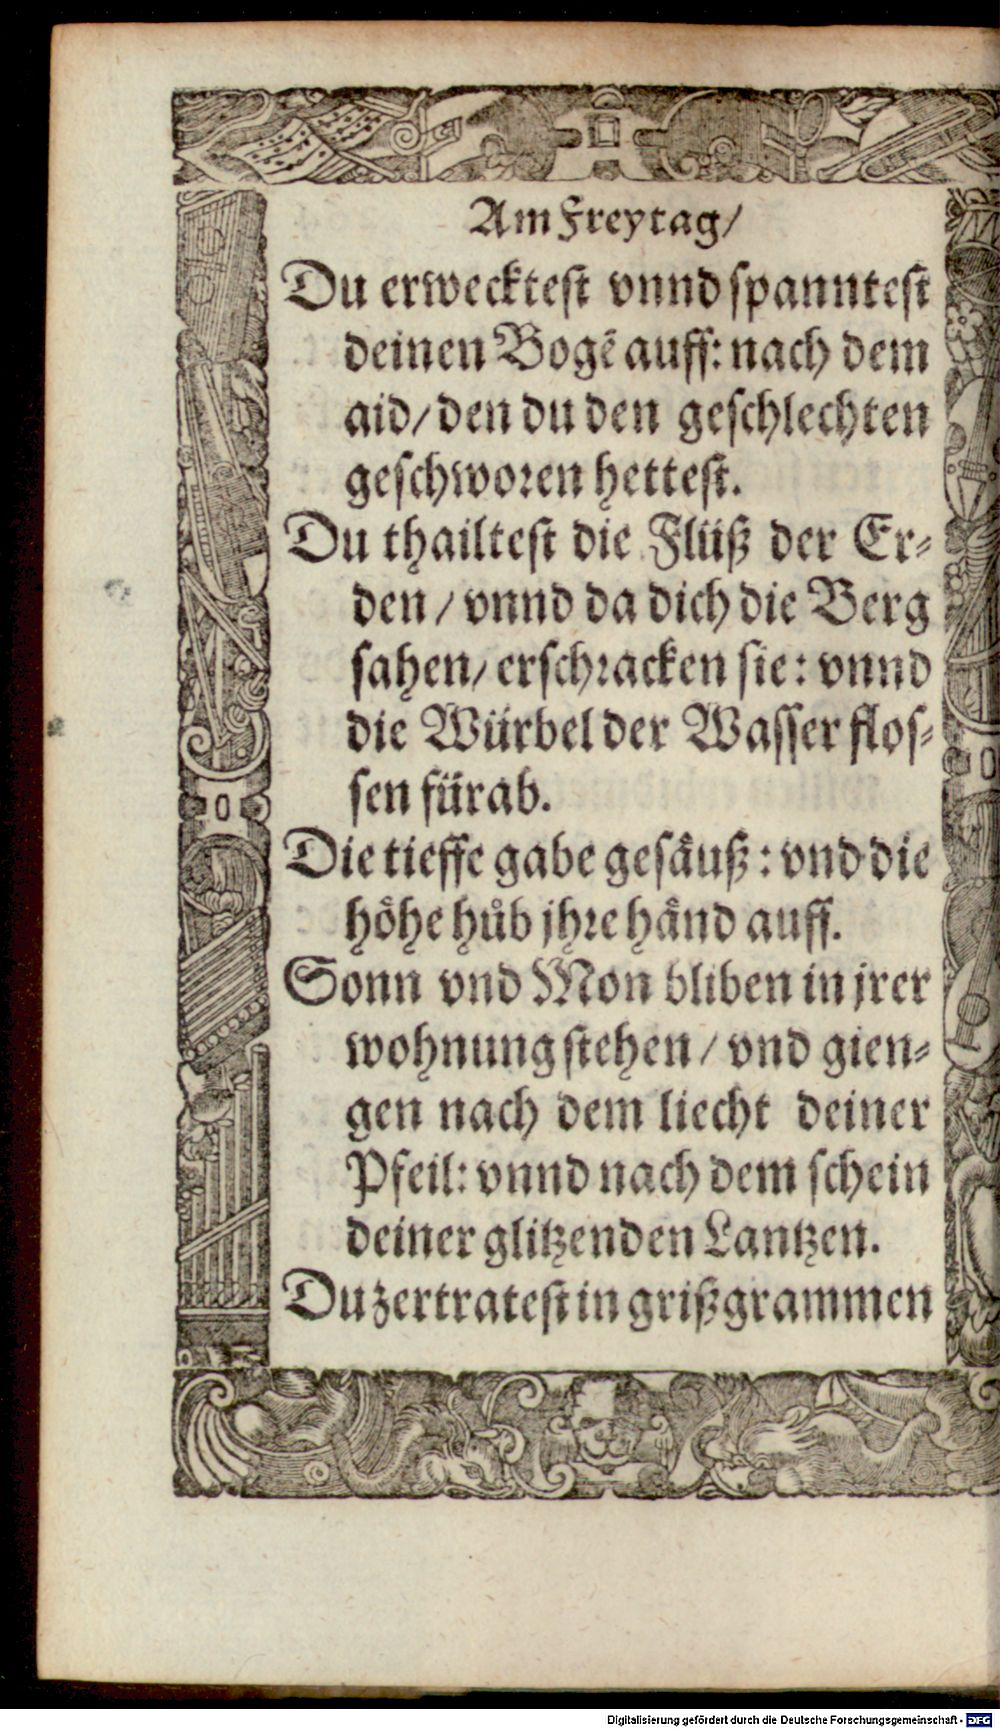 Am Freytag/
Du erwecktest vnnd spanntest
deinen Bogẽ auff: nach dem
aid/ den du den geschlechten
geschworen hettest.
Du thailtest die Flüß der Er-
den / vnnd da dich die Berg
sahen/ erschracken sie: vnnd
die Würbel der Wasser flos-
sen fürab.
Die tieffe gabe gesäuß: vnd die
höhe hůb jhre händ auff.
Sonn vnd Mon bliben in jrer
wohnung stehen / vnd gien-
gen nach dem liecht deiner
Pfeil: vnnd nach dem schein
deiner glitzenden Lantzen.
Du zertratest in grißgrammen
Digitalisierung gefördert durch die Deutsche Forschungsgemeinschaft - DFG